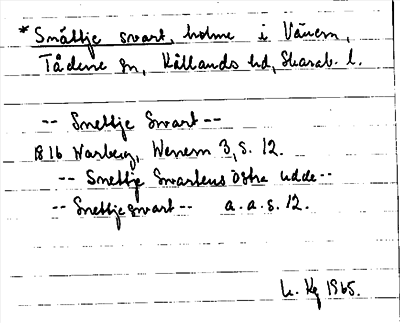 * Snättje svart, holme i Vänern,
Tådene sn, Kållands hd, Skarab. l.
-- Snettje Svart --
1816 Warberg, Wenern 3, s. 12.
-- Snettje Svartens östra udde --
-- Snettjesvart -- a.a.s. 12.
1965.